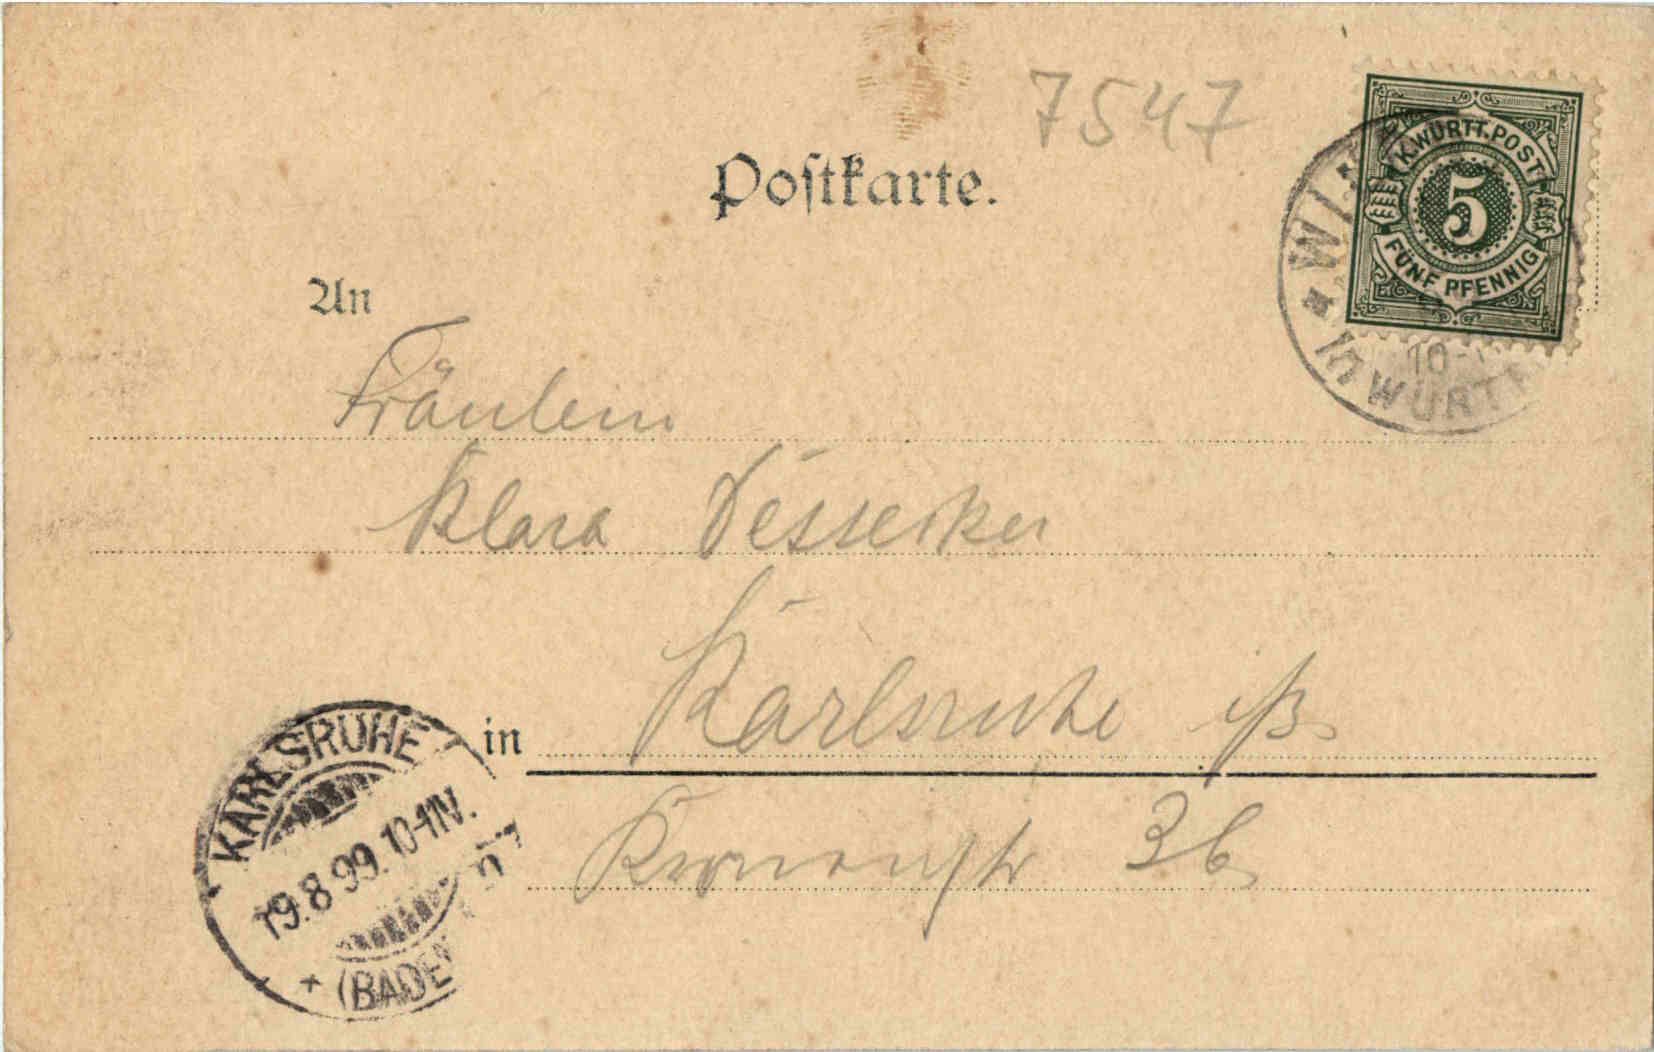 7547
Postkarte.
K. WÜRTT. POST
5
FÜNF PFENNIG
10-
WÜRTT
An
Fräulein
Klara Dessecker
in Karlsruhe i/B
Kronenstr 36
KARLSRUHE
19.8.99.10-11N.
(BADEN